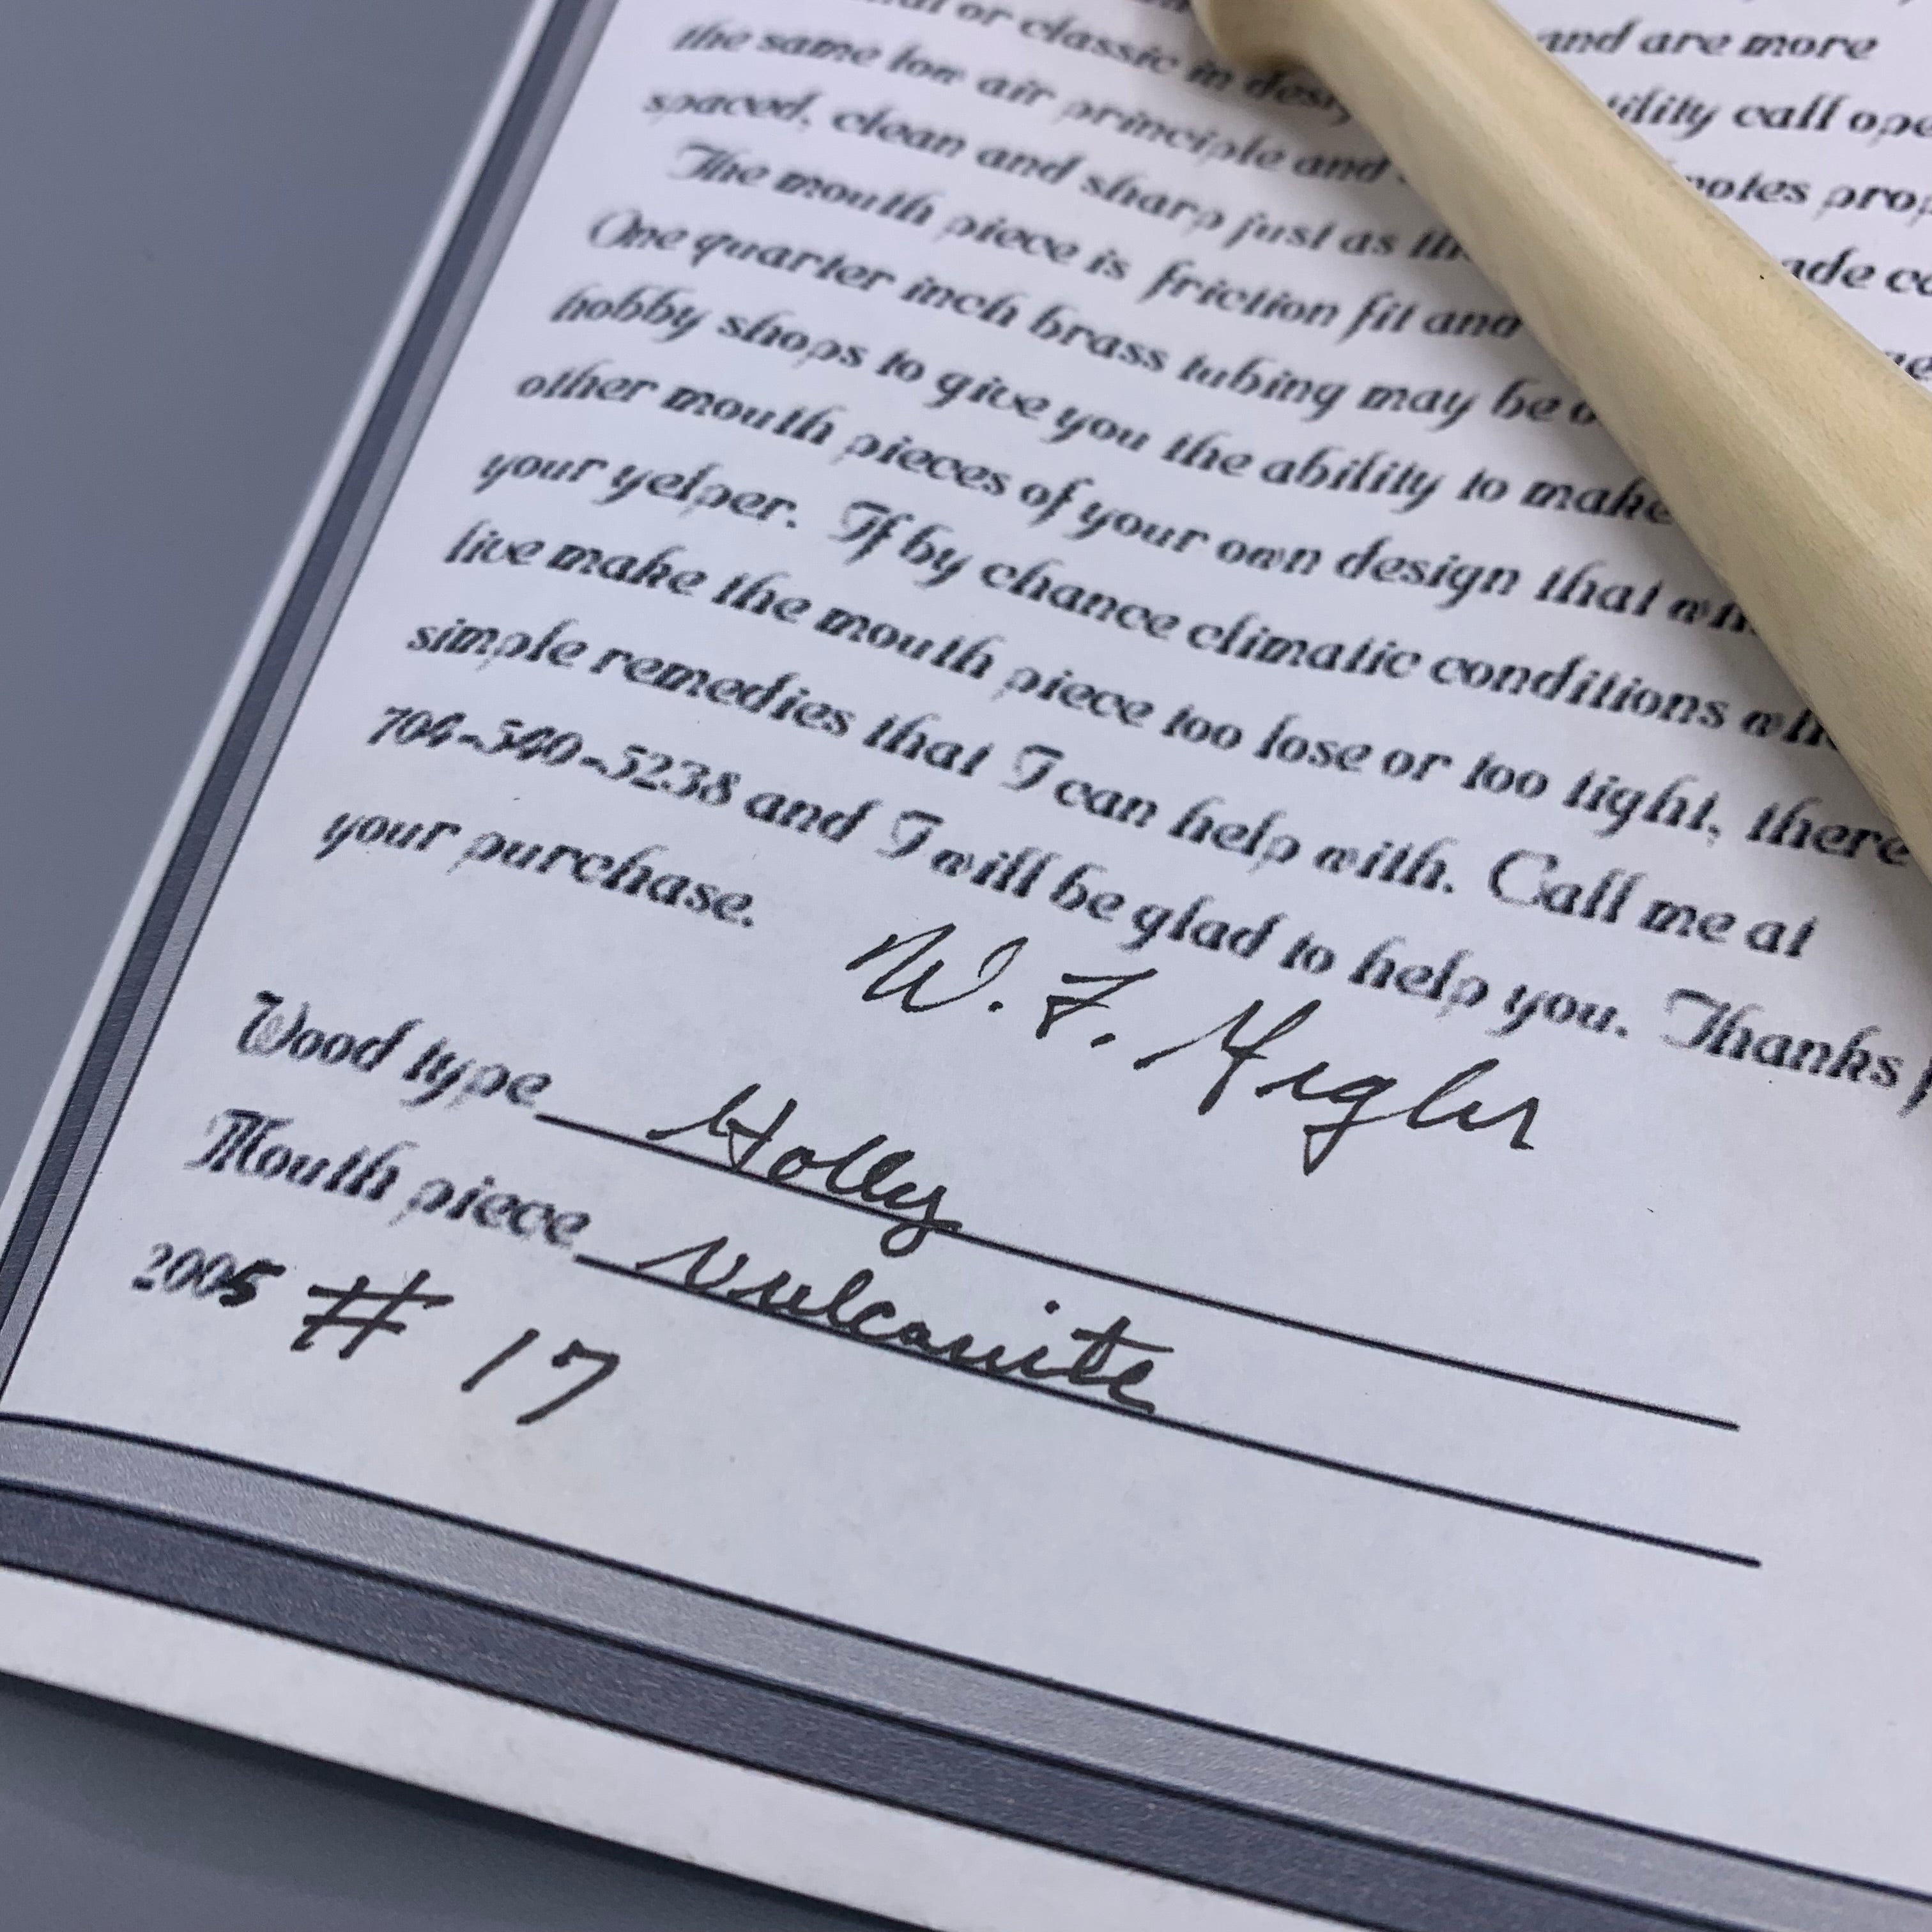 or classic in and are more
the same low air principle and utility call
spaced, clean and sharp just as notes
The mouth piece is friction fit and
One quarter inch brass tubing may be
hobby shops to give you the ability to make
other mouth pieces of your own design that
your yelper. If by chance climatic conditions
live make the mouth piece too lose or too tight, there
simple remedies that I can help with. Call me at
704-540-5238 and I will be glad to help you. Thanks
your purchase.
W. F.
Wood type Holly
Mouth piece Vulcanite
2005 # 17